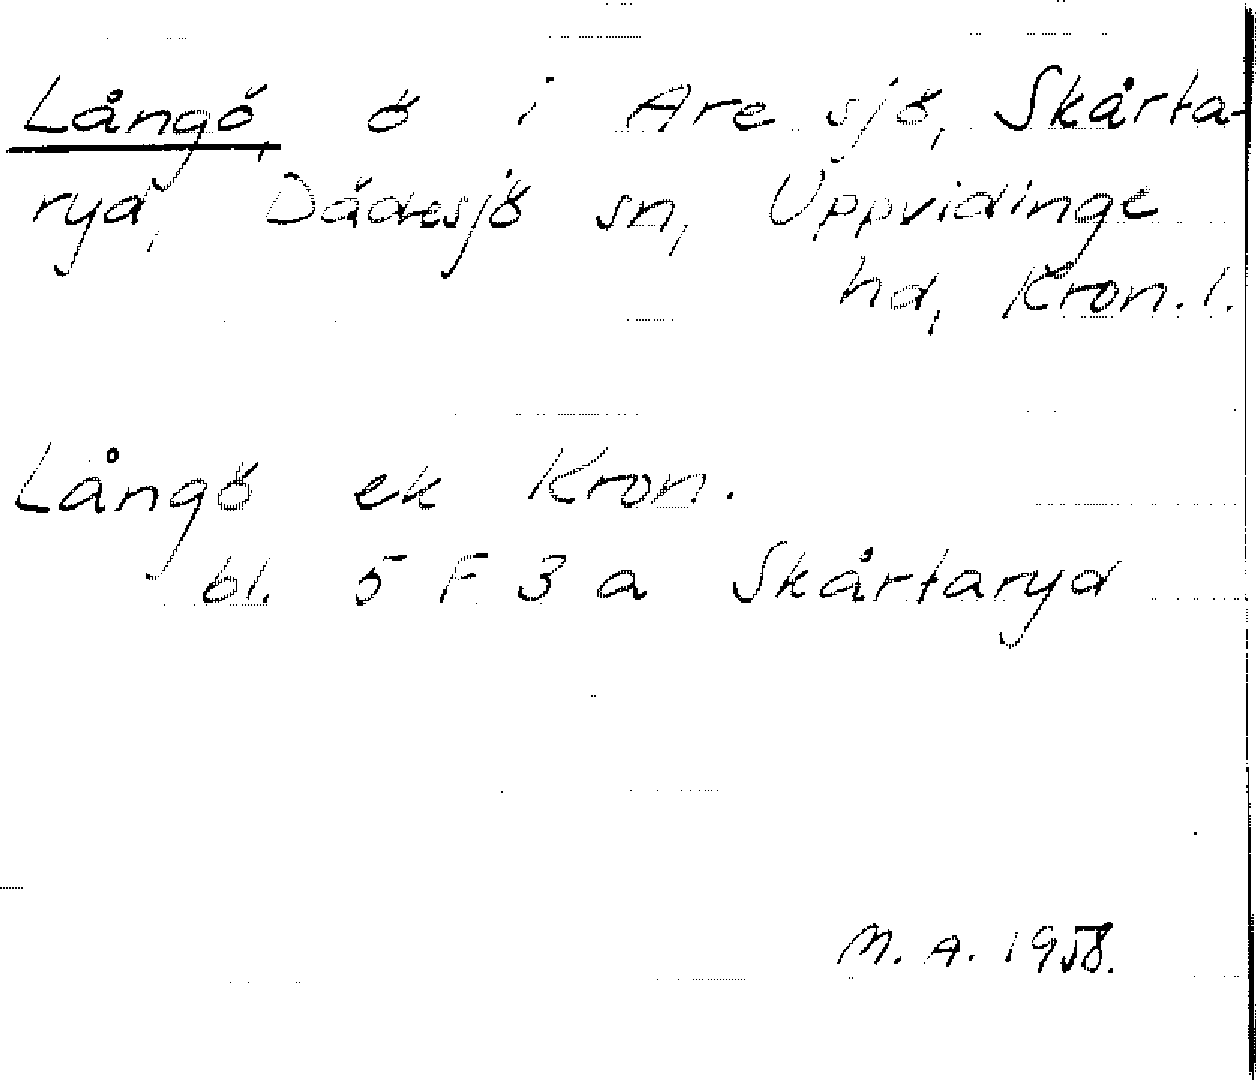 Långö, ö i Are sjö, Skårta-
ryd, Dädesjö sn, Uppvidinge
hd, Kron. l.
Långö ek Kron.
bl. 5 F 3 a Skårtaryd
M. A. 1958.